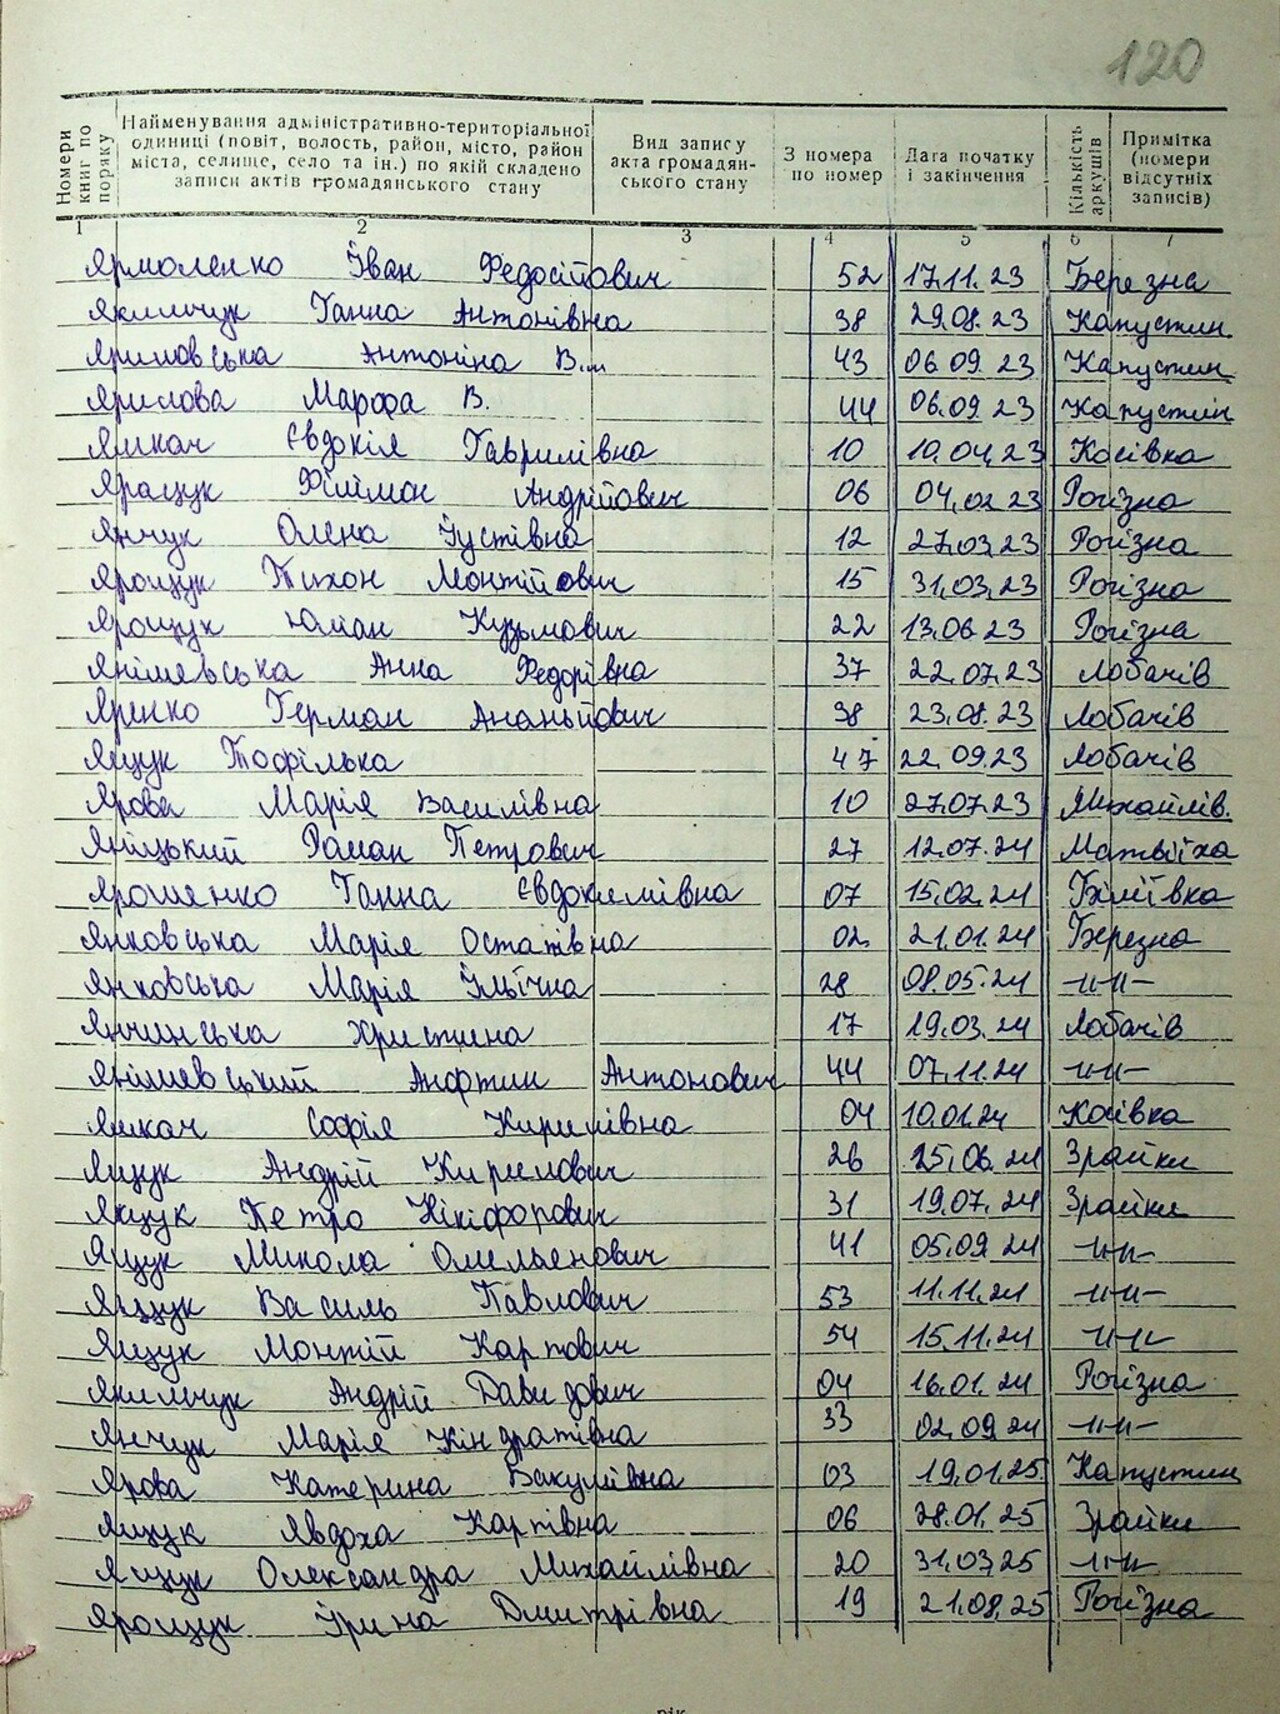 120
Номери книг по поряку
Найменування адміністративно-територіальної одиниці (повіт, волость, район, місто, район міста, селище, село та ін.) по якій складено записи актів громадянського стану
Вид запису акта громадян- ського стану
З номера по номер
Дата початку і закінчення
Кількість аркушів
Примітка (номери відсутніх записів)
1 2 3 4 5 6 7
Ярмоленко Іван Федосійович 52 17.11.23 Березна
Якимчук Ганна Антонівна 38 29.08.23 Капустин
Яримовська Антоніна В... 43 06.09.23 Капустин
Ярисова Марфа В. 44 06.09.23 Капустин
Ямкач Євдокія Гаврилівна 10 10.04.23 Косівка
Яращук Філімон Андрійович 06 04.02.23 Рогізна
Янчук Олена Іустівна 12 27.03.23 Рогізна
Ярощук Тихон Монтійович 15 31.03.23 Рогізна
Ярощук Юліан Кузьмович 22 13.06.23 Рогізна
Янішевська Анна Федорівна 37 22.07.23 Лобачів
Яренко Герман Ананьйович 38 23.08.23 Лобачів
Ящук Тофілька 47 22.09.23 Лобачів
Ярова Марія Василівна 10 27.07.23 Михайлів.
Яніцький Роман Петрович 27 12.07.24 Матвіїха
Ярошенко Ганна Євдокимівна 07 15.02.24 Біліївка
Янковська Марія Остапівна 02 21.01.24 Березна
Янковська Марія Ільїчна 28 08.05.24 -//-//-
Янчинська Христина 17 19.03.24 Лобачів
Янішевський Анфтин Антонович 44 07.11.24 -//-//-
Ямкач Софія Кирилівна 04 10.01.24 Косівка
Ящук Андрій Кирилович 26 25.06.24 Зрайки
Ящук Петро Нікіфорович 31 19.07.24 Зрайки
Ящук Микола Омельянович 41 05.09.24 -//-//-
Ящук Василь Павлович 53 11.11.24 -//-//-
Ящук Монтій Карпович 54 15.11.24 -//-//-
Якимчук Андрій Давидович 04 16.01.24 Рогізна
Янчук Марія Кіндратівна 33 02.09.24 -//-//-
Ярова Катерина Вакулівна 03 19.01.25 Капустин
Ящук Явдоха Карпівна 06 28.01.25 Зрайки
Ящук Олександра Михайлівна 20 31.03.25 -//-//-
Ярощук Ірина Дмитрівна 19 21.08.25 Рогізна
рік